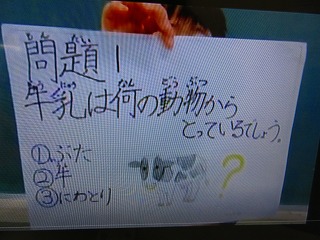 問題1
牛乳は何の動物から
とっているでしょう。
①ぶた
②牛
③にわとり
?